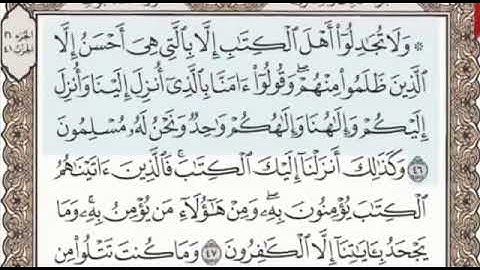 الجزء ٢١
الحزب ٤١
* وَلَا تُجَٰدِلُوٓاْ أَهۡلَ ٱلۡكِتَٰبِ إِلَّا بِٱلَّتِي هِيَ أَحۡسَنُ إِلَّا
ٱلَّذِينَ ظَلَمُواْ مِنۡهُمۡۖ وَقُولُوٓاْ ءَامَنَّا بِٱلَّذِيٓ أُنزِلَ إِلَيۡنَا وَأُنزِلَ
إِلَيۡكُمۡ وَإِلَٰهُنَا وَإِلَٰهُكُمۡ وَٰحِدٞ وَنَحۡنُ لَهُۥ مُسۡلِمُونَ
٤٦ وَكَذَٰلِكَ أَنزَلۡنَآ إِلَيۡكَ ٱلۡكِتَٰبَۚ فَٱلَّذِينَ ءَاتَيۡنَٰهُمُ
ٱلۡكِتَٰبَ يُؤۡمِنُونَ بِهِۦۖ وَمِنۡ هَٰٓؤُلَآءِ مَن يُؤۡمِنُ بِهِۦۚ وَمَا
يَجۡحَدُ بِـَٔايَٰتِنَآ إِلَّا ٱلۡكَٰفِرُونَ ٤٧ وَمَا كُنتَ تَتۡلُواْ مِن